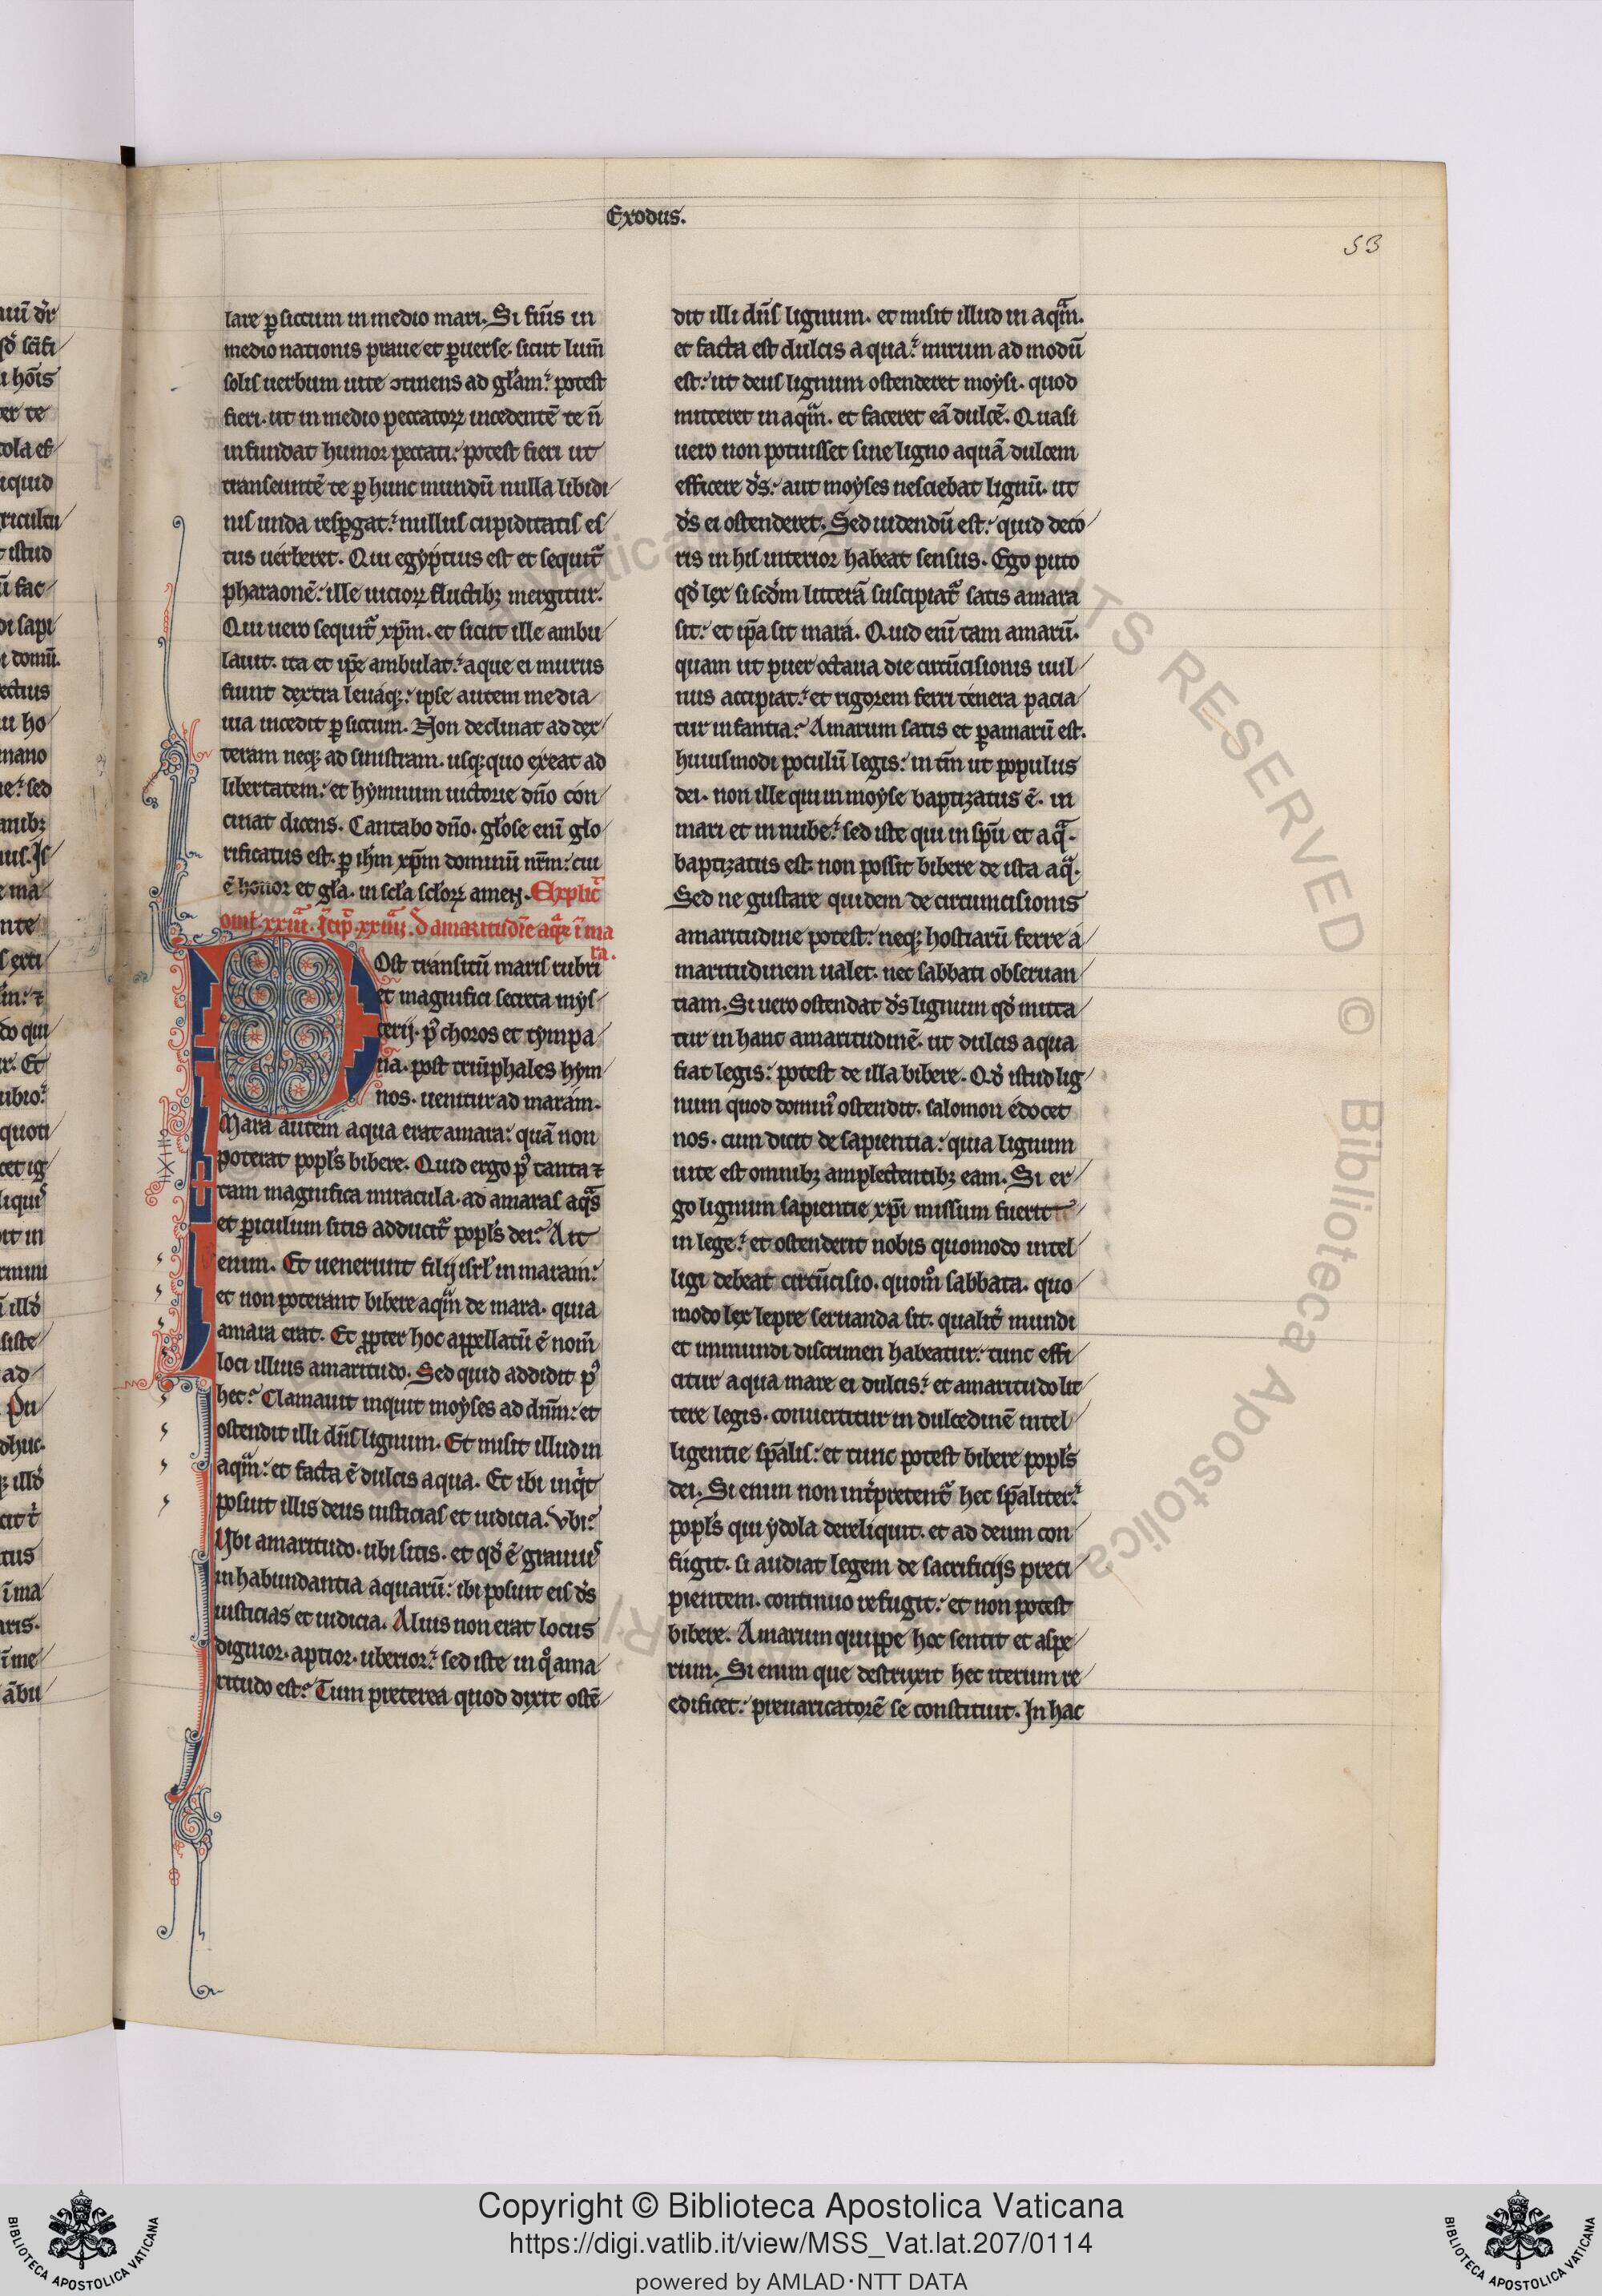 Exodus.
53
lare ꝑ siccum in medio mari. Si fiūs in
medio nationis praue et ꝑuerse. sicut lum̄
solis uerbum uite ↄtinens ad gl̄am: potest
fieri. ut in medio peccatoꝝ incedentē te n̄
infundat humor peccati: potest fieri ut
transeuntē te ꝑ hunc mundū nulla libidi
nis unda respgat: nullus cupiditatis es
tus uerberet. Qui egyptius est et sequit̄
pharaonē: ille uicioꝝ fluctibꝫ mergitur.
Qui uero sequit̄ xp̄m. et sicut ille ambu
lauit. ita et ip̄e ambulat: aque ei murus
fiunt dextra leuaqꝫ: ipse autem media
uia incedit ꝑ siccum. Non declinat ad dex
teram neqꝫ ad sinistram. usqꝫquo exeat ad
libertatem: et hymnum uictorie dn̄o con
cinat dicens. Cantabo dn̄o. gl̄ose enī glo
rificatus est. ꝑ ih̄m xp̄m dominū nr̄m: cui
ē honor et gl̄a. in scl̄a scl̄oꝝ amen. Explic̄
omt. xxiii. Īcip̄. xxiiii. d̄ amaritudīe aq̄e ī ma
ra.
Post transitū maris rubri
et magnifici secreta mys
terij. pꝰ choros et tympa
na. post triūphales hym
nos. uenitur ad maram.
Mara autem aqua erat amara: quā non
poterat popl̄s bibere. Quid ergo pꝰ tanta ⁊
tam magnifica miracula. ad amaras aq̄s
et ꝑiculum sitis adducit̄ popl̄s dei? Ait
enim. Et uenerunt filij isrl̄ in maram:
et non poterant bibere aq̄m de mara. quia
amara erat. Et ꝓpter hoc appellatū ē nom̄
loci illius amaritudo. Sed quid addidit pꝰ
hec? Clamauit inquit moyses ad dn̄m: et
ostendit illi dn̄s lignum. Et misit illud in
aq̄m: et facta ē dulcis aqua. Et ibi inq̄t
posuit illis deus iusticias et iudicia. Vbi?
Vbi amaritudo. ubi sitis. et qd̄ ē grauiꝰ
in habundantia aquarū: ibi posuit eis d̄s
iusticias et iudicia. Aliuis non erat locus
dignior. aptior. uberior: sed iste in qͦ ama
ritudo est? Tum preterea quod dixit ostē
dit illi dn̄s lignum. et misit illud in aq̄m.
et facta est dulcis aqua: mirum ad modū
est: ut deus lignum ostenderet moysi. quod
mitteret in aq̄m. et faceret eā dulcē. Quasi
uero non potuisset sine ligno aquā dulcem
efficere d̄s: aut moyses nesciebat lignū. ut
d̄s ei ostenderet. Sed uidendū est: quid deco
ris in his interior habeat sensus. Ego puto
qd̄ lex si scd̄m litterā suscipiat̄ satis amara
sit: et ip̄a sit mara. Quid enī tam amarū.
quam ut puer octaua die circūcisionis uul
nus accipiat: et rigorem ferri tenera pacia
tur infantia? Amarum satis et ꝑamarū est.
huiusmodi poculū legis: in tm̄ ut populus
dei. non ille qui in moyse baptizatus ē. in
mari et in nube: sed iste qui in sp̄u et aq̄.
baptizatus est. non possit bibere de ista aq̄.
Sed ne gustare quidem de circumcisionis
amaritudine potest: neqꝫ hostiarū ferre a
maritudinem ualet. nec sabbati obseruan
tiam. Si uero ostendat d̄s lignum qd̄ mitta
tur in hanc amaritudinē. ut dulcis aqua
fiat legis: potest de illa bibere. Qd̄ istud lig
num quod dominꝰ ostendit. salomon edocet
nos. cum dicit de sapientia: quia lignum
uite est omnibꝫ amplectentibꝫ eam. Si er
go lignum sapientie xp̄i missum fuerit
in lege: et ostenderit nobis quomodo intel
ligi debeat circūcisio. quom̊ sabbata. quo
modo lex lepre seruanda sit. qualit̄ mundi
et immundi discrimen habeatur: tunc effi
citur aqua mare ei dulcis: et amaritudo lit
tere legis. conuertitur in dulcedinē intel
ligentie sp̄alis: et tunc potest bibere popl̄s
dei. Si enim non int̄pretent̄ hec sp̄aliter:
popl̄s qui ydola dereliquit. et ad deum con
fugit. si audiat legem de sacrificijs preci
pientem. continuo refugit: et non potest
bibere. Amarum quippe hoc sentit et aspe
rum. Si enim que destruxit hec iterum re
edificet: preuaricatorē se constituit. In hac
Copyright © Biblioteca Apostolica Vaticana
https://digi.vatlib.it/view/MSS_Vat.lat.207/0114
powered by AMLAD·NTT DATA
BIBLIOTECA APOSTOLICA VATICANA
BIBLIOTECA APOSTOLICA VATICANA